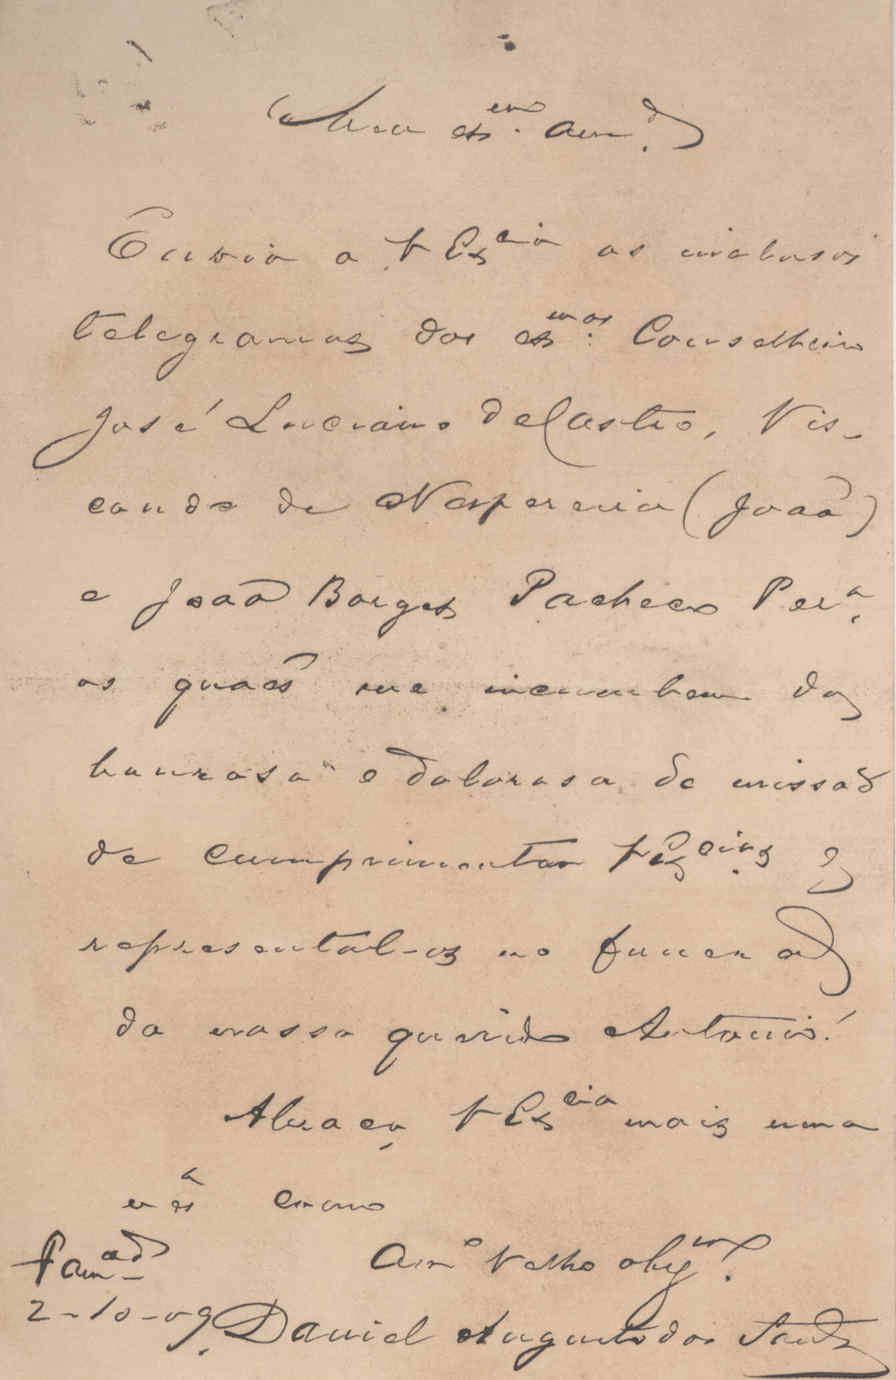 Meu exmo. amo.
Envio a V Excia os inclusos
telegramas dos exmos. Conselheiro
José Luciano de Castro, Vis-
conde de Nespereira (João)
e João Borges Pacheco Pera.
os quaes me incumbem da
honrosa e dolorosa de missão
de cumprimentar V Excias. e
represental-os no funeral
do nosso querido Antonio!
Abraça V Excia mais uma
vês como
Amo Velho obgmo.
2-10-09
Daniel Augusto dos Santos